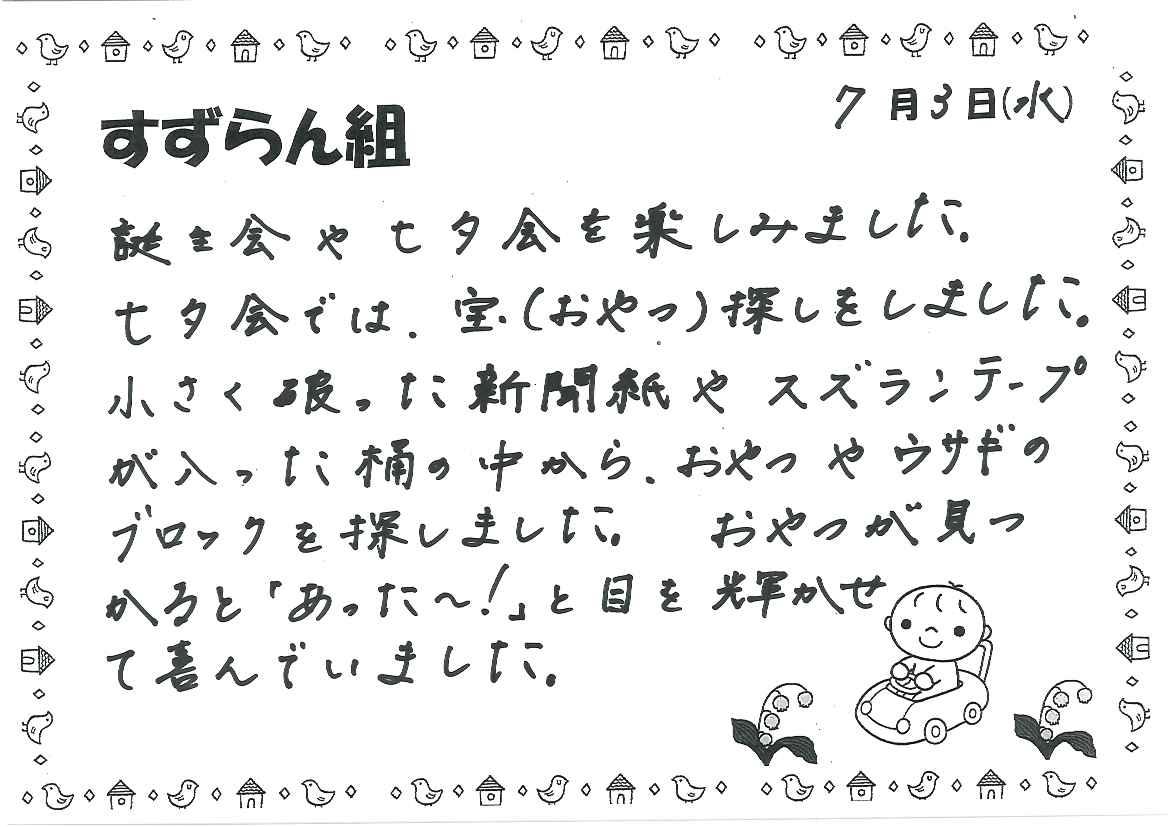 7月3日(水)
すずらん組
誕生会や七夕会を楽しみました。
七夕会では、宝(おやつ)探しをしました。
小さく破った新聞紙やスズランテープ
が入った桶の中から、おやつやウサギの
ブロックを探しました。 おやつが見つ
かると「あった~!」と目を輝かせ
て喜んでいました。